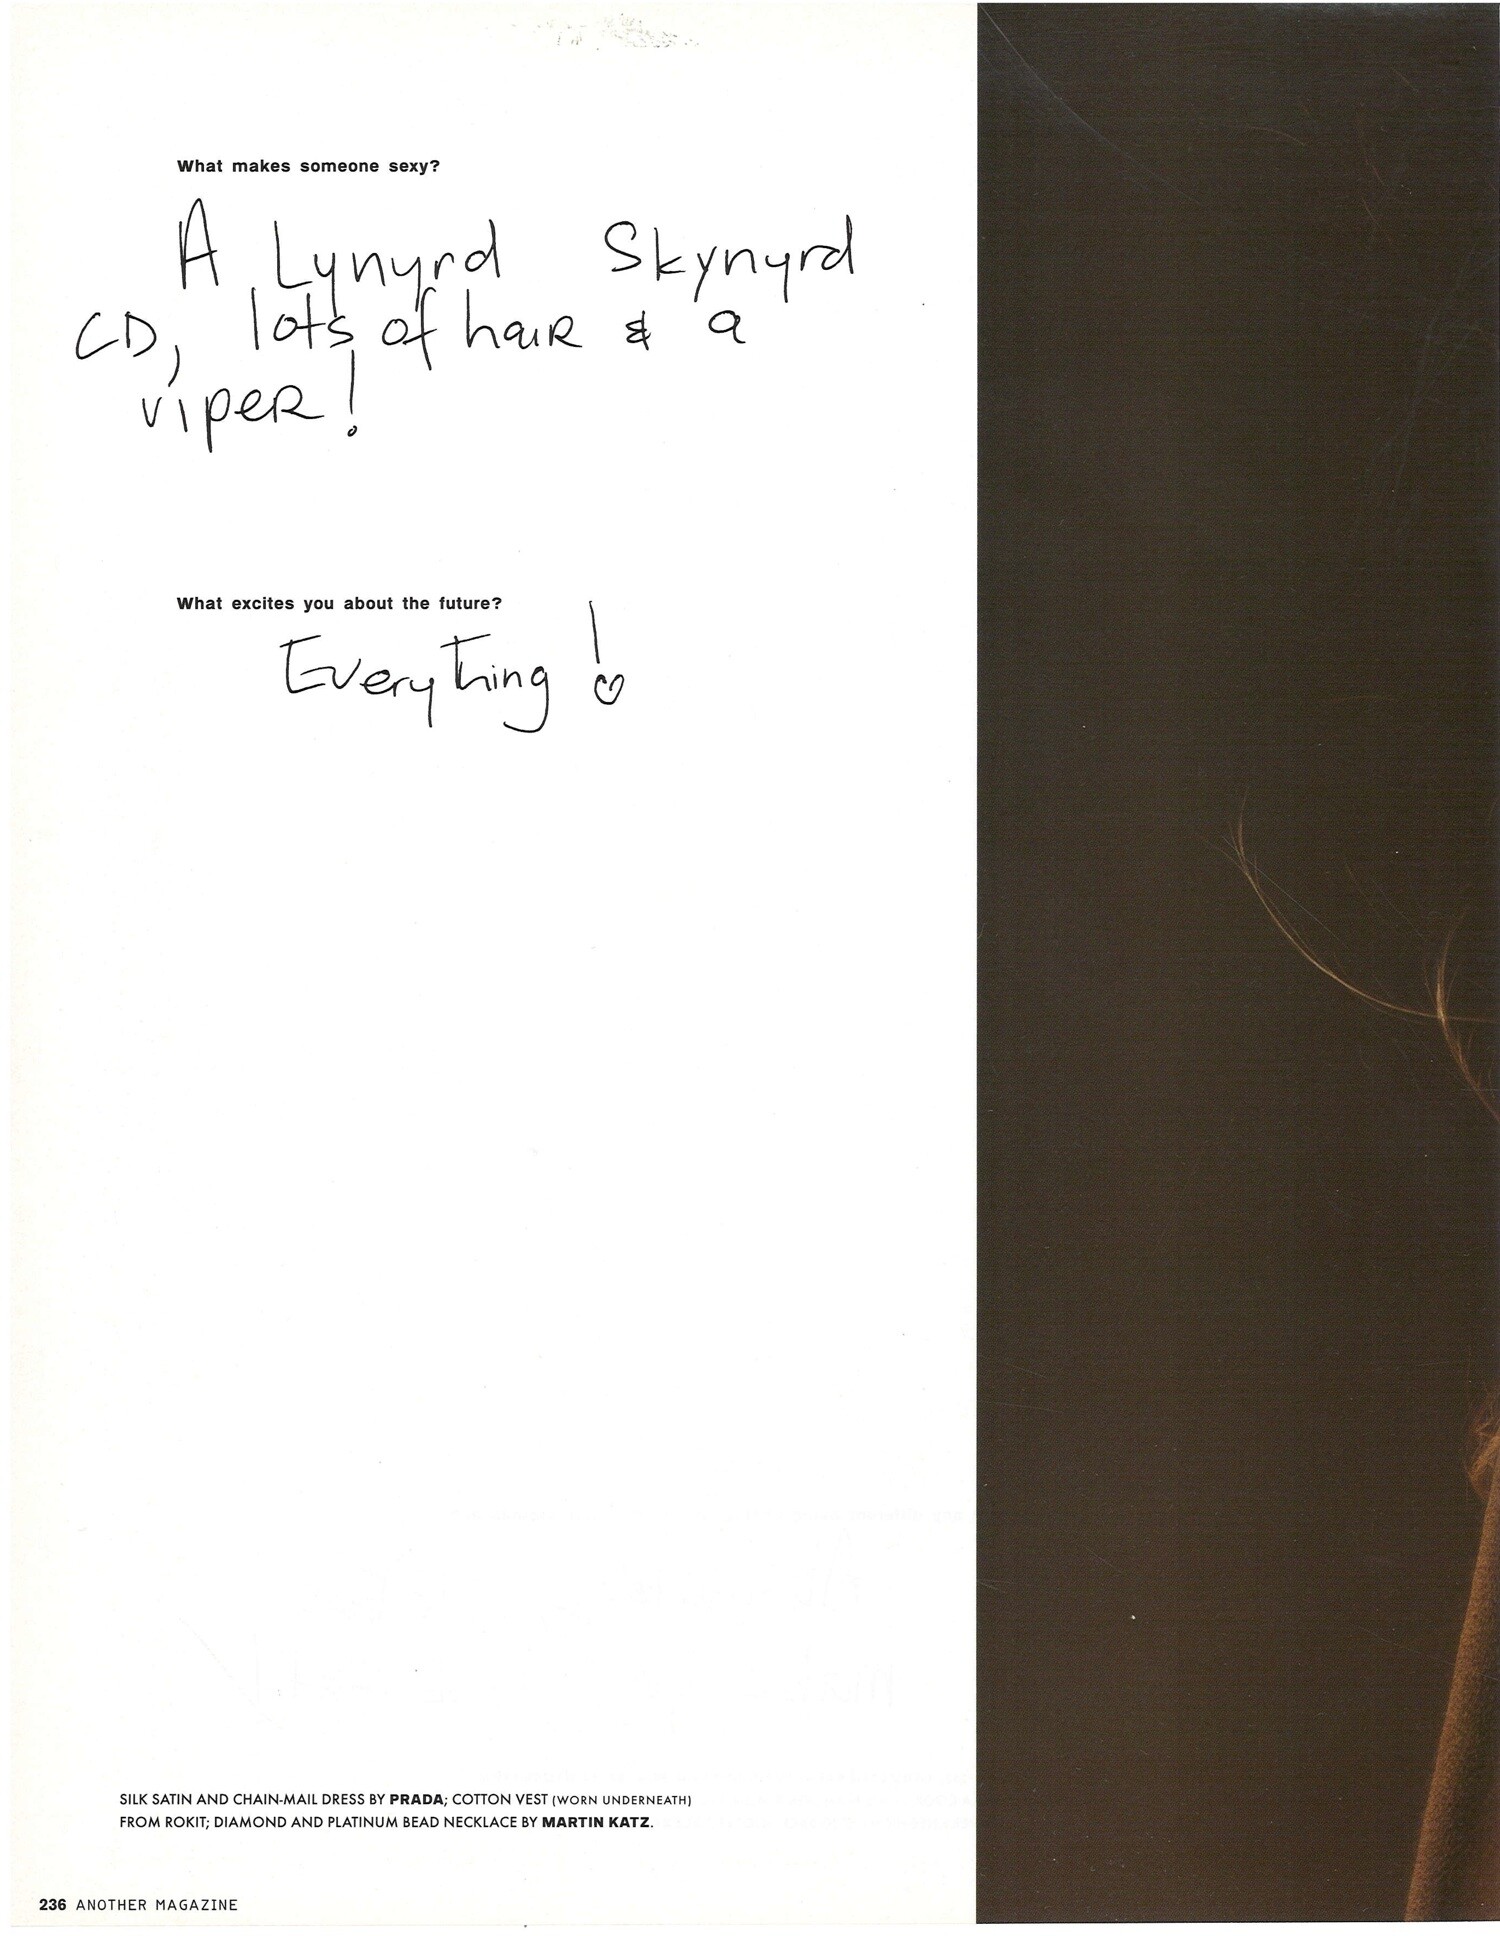 What makes someone sexy?
A Lynyrd Skynyrd
CD, lots of hair & a
viper!
What excites you about the future?
Everything!
SILK SATIN AND CHAIN-MAIL DRESS BY PRADA; COTTON VEST (WORN UNDERNEATH)
FROM ROKIT; DIAMOND AND PLATINUM BEAD NECKLACE BY MARTIN KATZ.
236 ANOTHER MAGAZINE